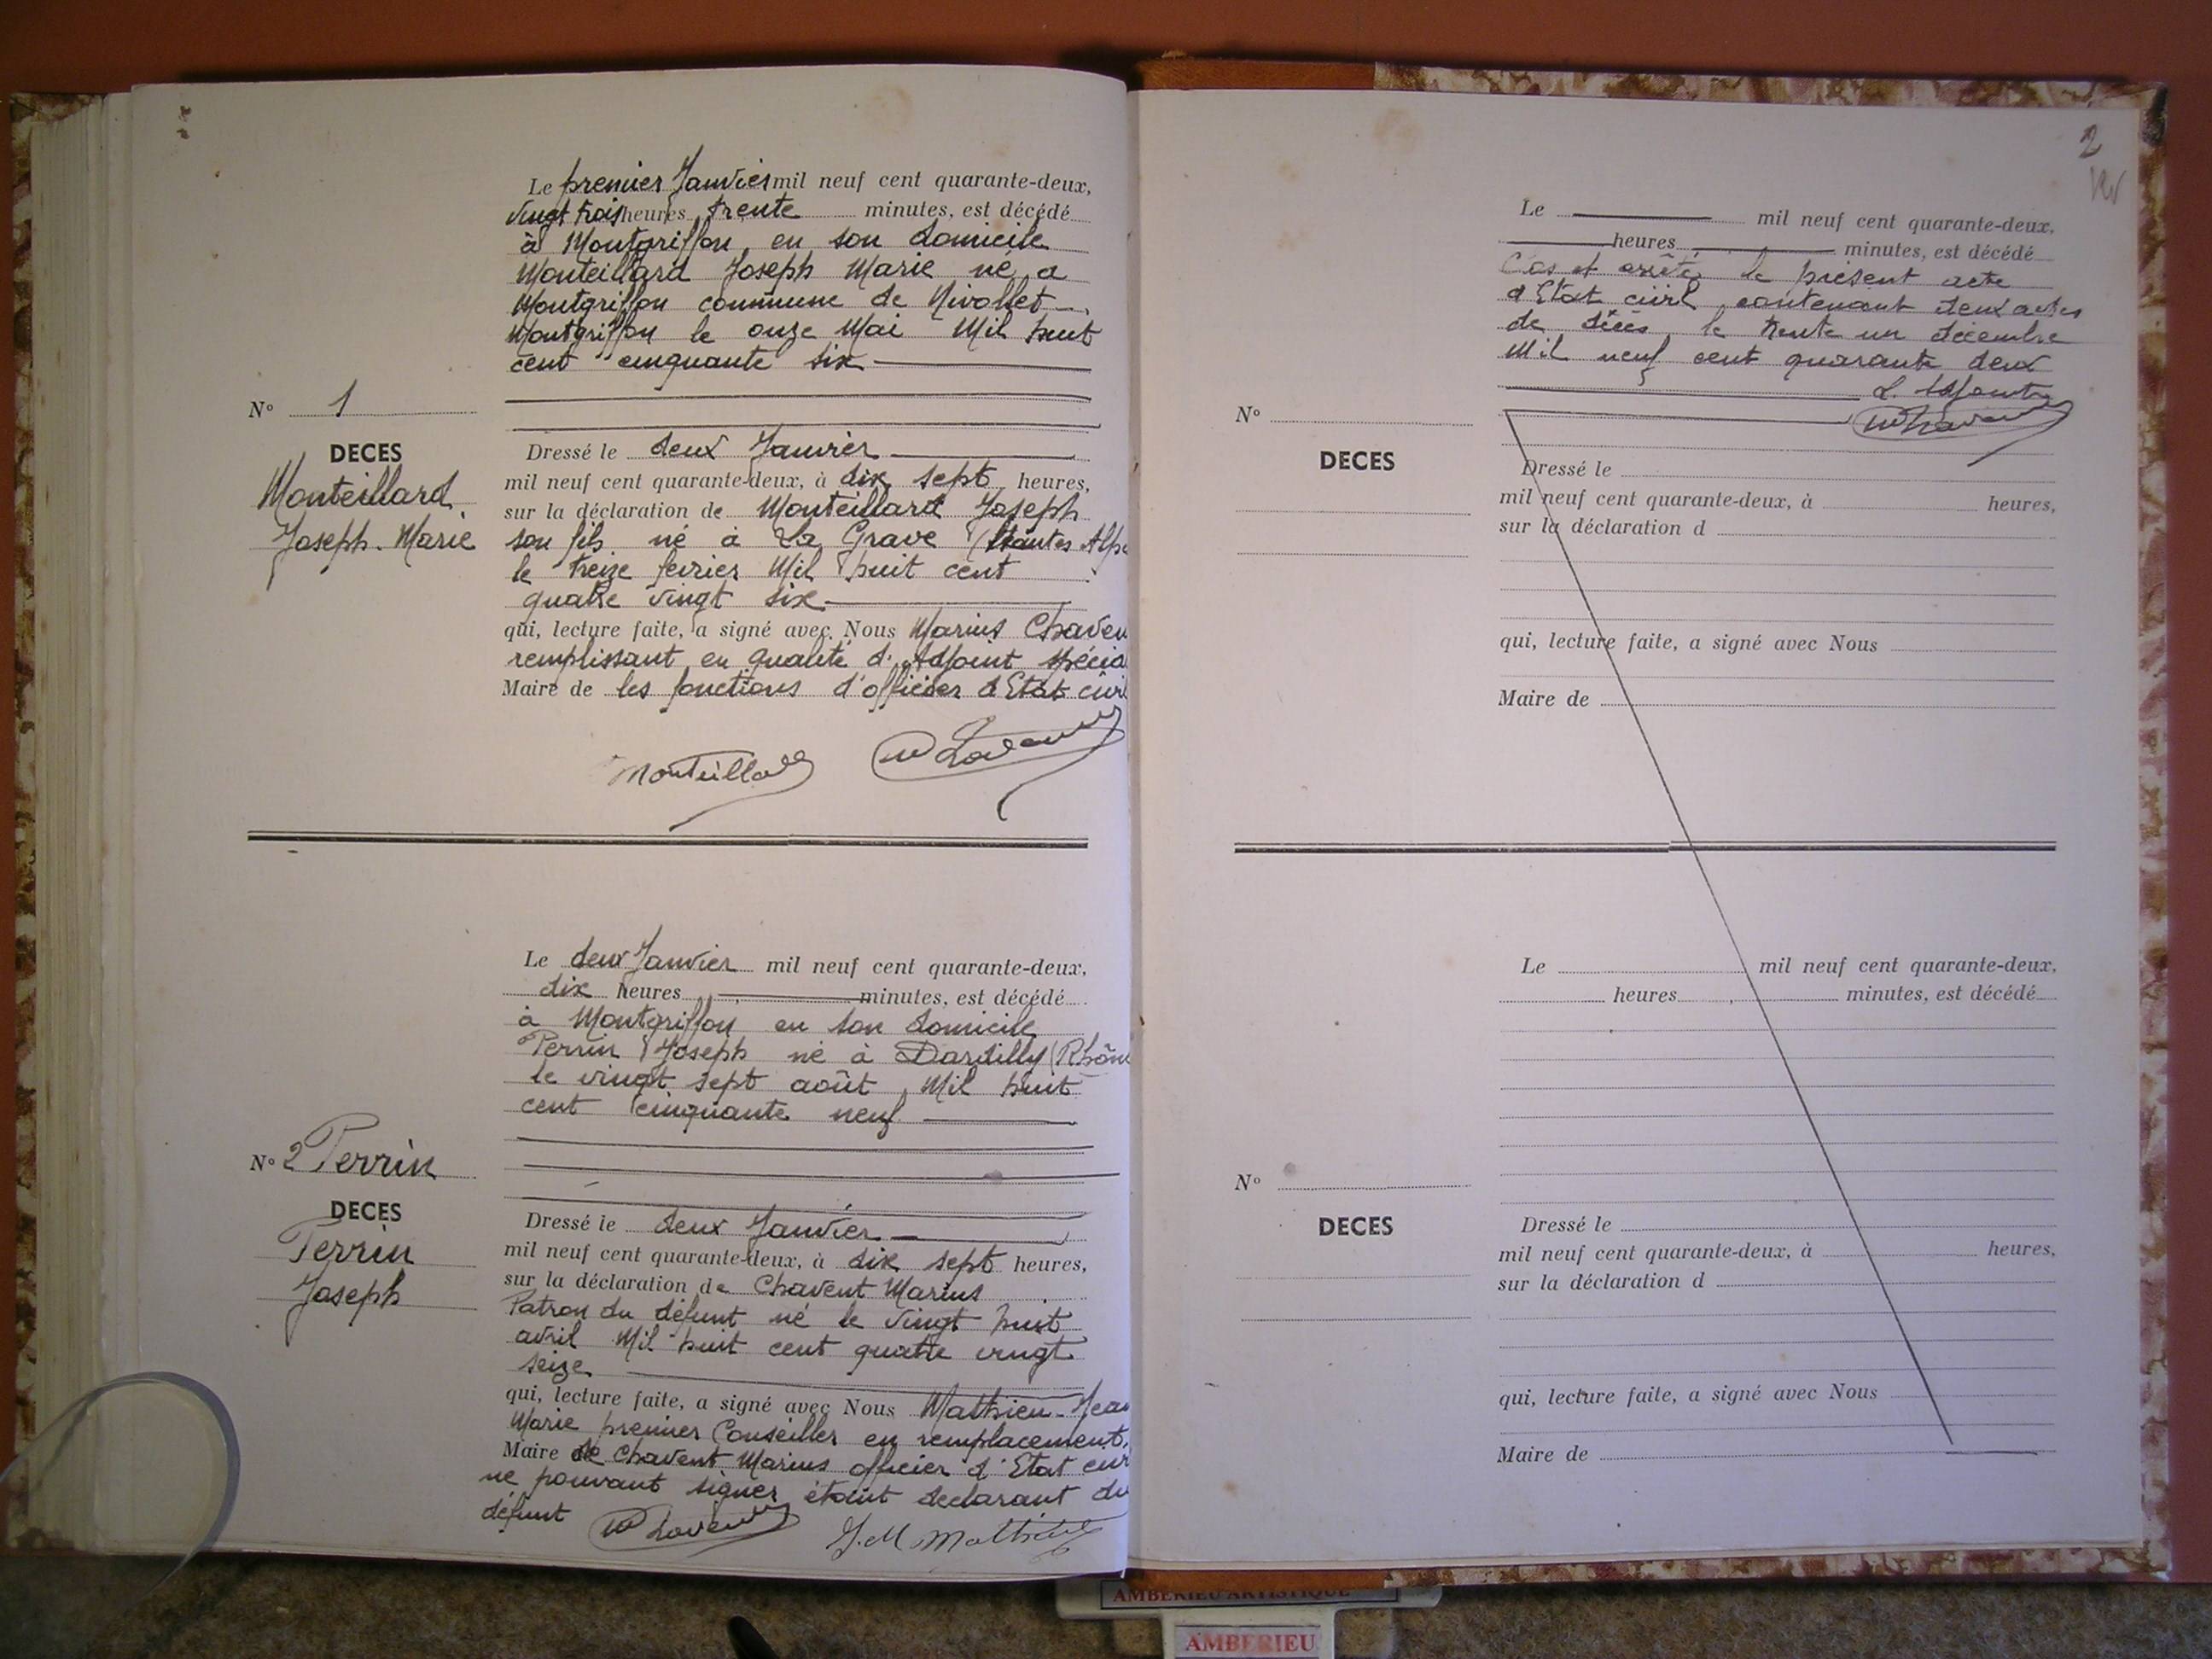 Le premier Janvier mil neuf cent quarante-deux,
vingt trois heures trente minutes, est décédé
à Montgriffon, en son domicile
Monteillard Joseph Marie né a
Montgriffon commune de Nivollet-
Montgriffon le onze Mai Mil huit
cent cinquante six
N° 1
DECES
Monteillard
Joseph. Marie
Dressé le deux Janvier
mil neuf cent quarante-deux, à dix sept heures,
sur la déclaration de Monteillard Joseph
son fils né à La Grave (Hautes Alpe
le treize fevrier Mil huit cent
quatre vingt six
qui, lecture faite, a signé avec Nous Marius Chaven
remplissant en qualité d'Adjoint spécia
Maire de les fonctions d'officier d'Etat civil
Monteillard
Le deux Janvier mil neuf cent quarante-deux,
dix heures minutes, est décédé
à Montgriffon en son domicile
Perrin Joseph né à Dardilly (Rhône
le vingt sept août Mil huit
cent cinquante neuf
N° 2 Perrin
DECES
Perrin
Joseph
Dressé le deux Janvier
mil neuf cent quarante-deux, à dix sept heures,
sur la déclaration de Chavent Marius
Patron du défunt né le vingt huit
avril Mil huit cent quatre vingt
seize
qui, lecture faite, a signé avec Nous Mathieu-Jean
Marie premier Conseiller en remplacement.
Maire de Chavent Marius officier d'Etat civ
ne pouvant signer étant declarant du
défunt
J.M Mathieu
2
Le mil neuf cent quarante-deux,
heures, minutes, est décédé
Clos et arrêté le présent acte
d'Etat civil contenant deux actes
de décès, le trente un décembre
Mil neuf cent quarante deux
N°
DECES
Dressé le
mil neuf cent quarante-deux, à heures,
sur la déclaration d
qui, lecture faite, a signé avec Nous
Maire de
Le mil neuf cent quarante-deux,
heures, minutes, est décédé
N°
DECES
Dressé le
mil neuf cent quarante-deux, à heures,
sur la déclaration d
qui, lecture faite, a signé avec Nous
Maire de
AMBERIEU ARTISTIQUE
AMBERIEU